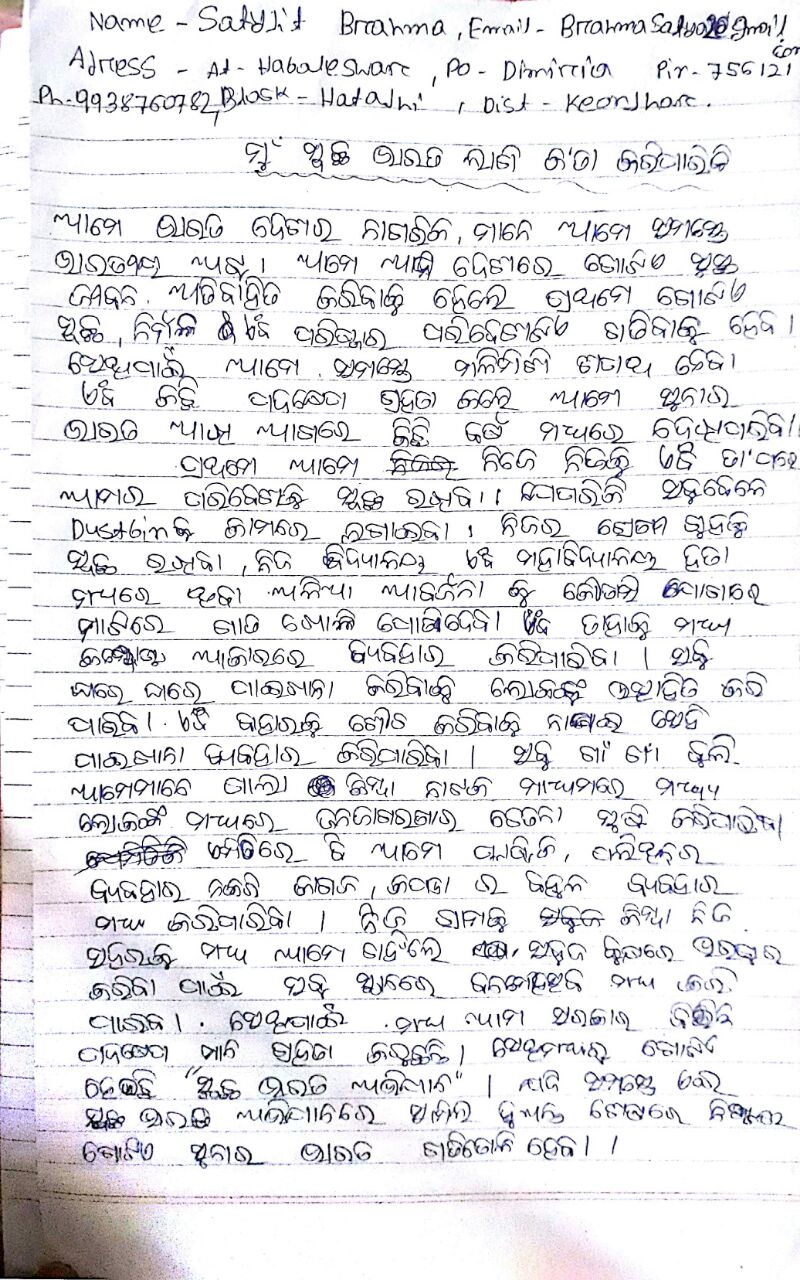 Name - Satyajit Brahma, Email - BrahmaSatya26@gmail.com
Adress - At - Habaleswar, Po - Dimiria Pin - 756121
Ph-9938760782, Block - Hatadhi, Dist - Keonjhar.
ମୁଁ ସ୍ୱଚ୍ଛ ଭାରତ ଲାଗି କ'ଣ କରିପାରିବି
ଆମେ ଭାରତ ଦେଶର ନାଗରିକ, ମାନେ ଆମେ ସମସ୍ତେ
ଭାରତୀୟ ଅଟୁ। ଆମେ ଆମ ଦେଶରେ ଗୋଟିଏ ସୁସ୍ଥ
ଜୀବନ ଅତିବାହିତ କରିବାକୁ ହେଲେ ପ୍ରଥମେ ଗୋଟିଏ
ସ୍ୱଚ୍ଛ, ନିର୍ମଳ ଏବଂ ପରିଷ୍କାର ପରିବେଶଟିଏ ଗଢିବାକୁ ହେବ।
ସେଥିପାଇଁ ଆମେ ସମସ୍ତେ ମିଳିମିଶି
ଏବଂ କିଛି ପଦକ୍ଷେପ ଗ୍ରହଣ କଲେ ଆମେ ସୁନ୍ଦର
ଭାରତ ଆମ ଆଗରେ କିଛି ବର୍ଷ ମଧ୍ୟରେ ଦେଖିପାରିବା।
ପ୍ରଥମେ ଆମେ ନିଜେ ନିଜକୁ ଏବଂ ତା'ପରେ
ଆମର ପରିବେଶକୁ ସ୍ୱଚ୍ଛ ରଖିବା।
Dustbin କୁ କାମରେ ଲଗାଇବା। ନିଜର ଗୃହକୁ
ସ୍ୱଚ୍ଛ ରଖିବା, ନିଜ ବିଦ୍ୟାଳୟ ଏବଂ ମହାବିଦ୍ୟାଳୟ ହତା
ମଧ୍ୟରେ ଥିବା ଅଳିଆ ଆବର୍ଜନା କୁ କୌଣସି ଜାଗାରେ
ମାଟିରେ ଗାତ ଖୋଳି ପୋତିଦେବା ଏବଂ ତାହାକୁ ମଧ୍ୟ
ଆକାରରେ ବ୍ୟବହାର କରିପାରିବା। ସବୁ
ଘରେ ଘରେ ପାଇଖାନା କରିବାକୁ ଲୋକଙ୍କୁ ଉତ୍ସାହିତ କରି
ପାରିବା। ଏବଂ ବାହାରକୁ ଶୌଚ କରିବାକୁ ନଯାଇ ସେହି
ପାଇଖାନା ବ୍ୟବହାର କରିପାରିବା। ସବୁ ଗାଁ ଗାଁ ବୁଲି
ଆମେମାନେ ପାଲା କିମ୍ବା ନାଟକ ମାଧ୍ୟମରେ ମଧ୍ୟ
ଲୋକଙ୍କ ମଧ୍ୟରେ ଚେତନା ସୃଷ୍ଟି କରିପାରିବା।
ଏମିତିରେ ବି ଆମେ ପ୍ଲାଷ୍ଟିକ, ପଲିଥିନର
ବ୍ୟବହାର ନକରି କାଗଜ, କପଡା ର ବହୁଳ ବ୍ୟବହାର
ମଧ୍ୟ କରିପାରିବା। ନିଜ ଗ୍ରାମକୁ କିମ୍ବା ନିଜ
ସହରକୁ ମଧ୍ୟ ଆମେ ଚାହିଁଲେ
କରିବା ପାଇଁ ସବୁ ସ୍ଥାନରେ ମଧ୍ୟ କରି
ପାରିବା। ସେଥିପାଇଁ ମଧ୍ୟ ଆମ ସରକାର
ପଦକ୍ଷେପ ମାନ ଗ୍ରହଣ କରୁଛନ୍ତି। ସେଥିମଧ୍ୟରୁ ଗୋଟିଏ
ହେଉଛି "ସ୍ୱଚ୍ଛ ଭାରତ ଅଭିଯାନ"। ଯଦି ସମସ୍ତେ ଏଇ
ସ୍ୱଚ୍ଛ ଭାରତ ଅଭିଯାନରେ ସାମିଲ ହୁଅନ୍ତି ଶେଷରେ ନିଶ୍ଚୟ
ଗୋଟିଏ ସୁନ୍ଦର ଭାରତ ଗଢିତୋଳି ହେବ।।